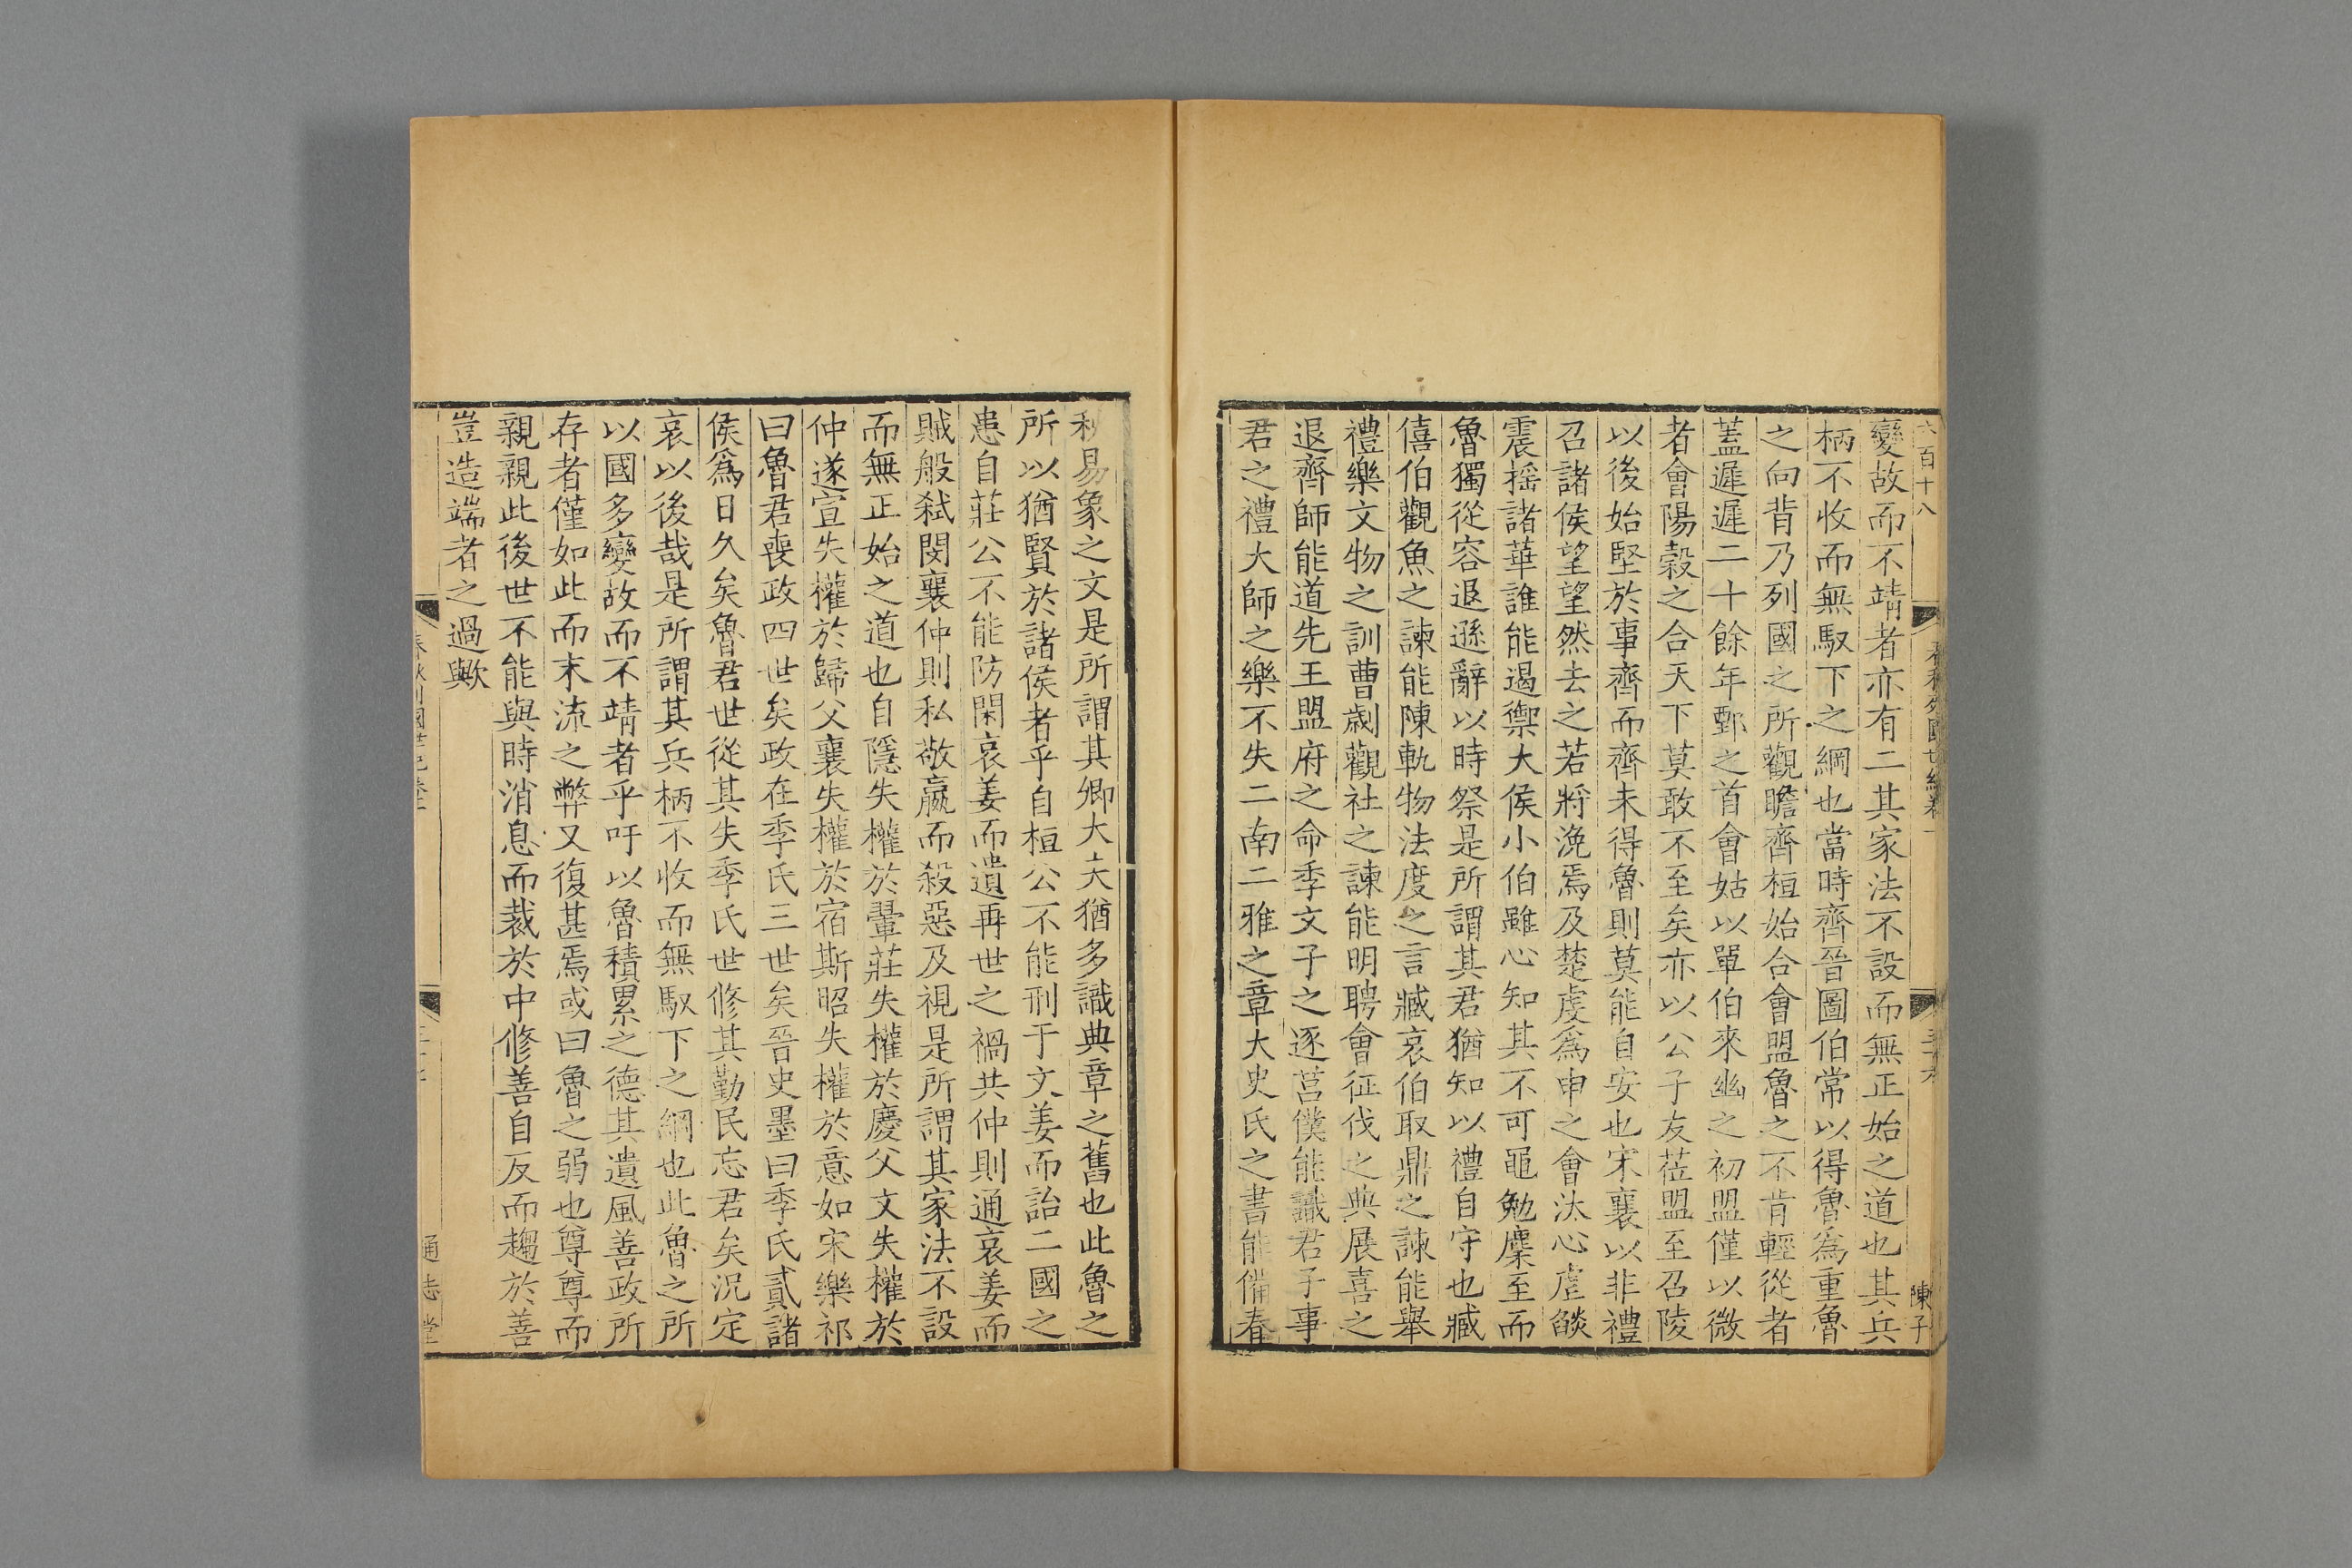 六百十八
陳子
變故而不靖者亦有二其家法不設而無正始之道也其兵
柄不收而無馭下之綱也當時齊晉圖伯常以得魯爲重魯
之向背乃列國之所觀瞻齊桓始合會盟魯之不肯輕從者
蓋遲遲二十餘年鄄之首會姑以單伯來幽之初盟僅以微
者會陽穀之合天下莫敢不至矣亦以公子友莅盟至召陵
以後始堅於事齊而齊未得魯則莫能自安也宋襄以非禮
召諸侯望望然去之若將浼焉及楚虔爲申之會汰心虐燄
震搖諸華誰能遏禦大侯小伯雖心知其不可黽勉麇至而
魯獨從容退遜辭以時祭是所謂其君猶知以禮自守也臧
僖伯觀魚之諫能陳軌物法度之言臧哀伯取鼎之諫能舉
禮樂文物之訓曹劌觀社之諫能明聘會征伐之典展喜之
退齊師能道先王盟府之命季文子之逐莒僕能識君子事
君之禮大師之樂不失二南二雅之章大史氏之書能備春
秋易象之文是所謂其卿大夫猶多識典章之舊也此魯之
所以猶賢於諸侯者乎自桓公不能刑于文姜而詒二國之
患自莊公不能防閑哀姜而遺再世之禍共仲則通哀姜而
賊般弒閔襄仲則私敬嬴而殺惡及視是所謂其家法不設
而無正始之道也自隱失權於翬莊失權於慶父文失權於
仲遂宣失權於歸父襄失權於宿斯昭失權於意如宋樂祁
曰魯君喪政四世矣政在季氏三世矣晉史墨曰季氏貳諸
侯爲日久矣魯君世從其失季氏世修其勤民忘君矣況定
哀以後哉是所謂其兵柄不收而無馭下之綱也此魯之所
以國多變故而不靖者乎吁以魯積累之德其遺風善政所
存者僅如此而末流之弊又復甚焉或曰魯之弱也尊尊而
親親此後世不能與時消息而裁於中修善自反而趨於善
豈造端者之過歟
通志堂